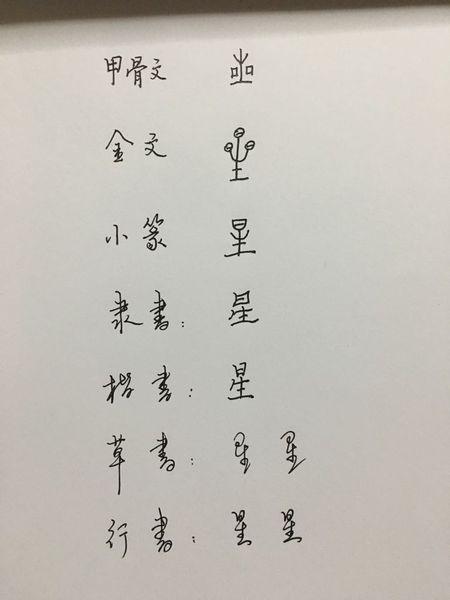 甲骨文 星
金文 星
小篆 星
隶書：星
楷書：星
草書：星 星
行書：星 星